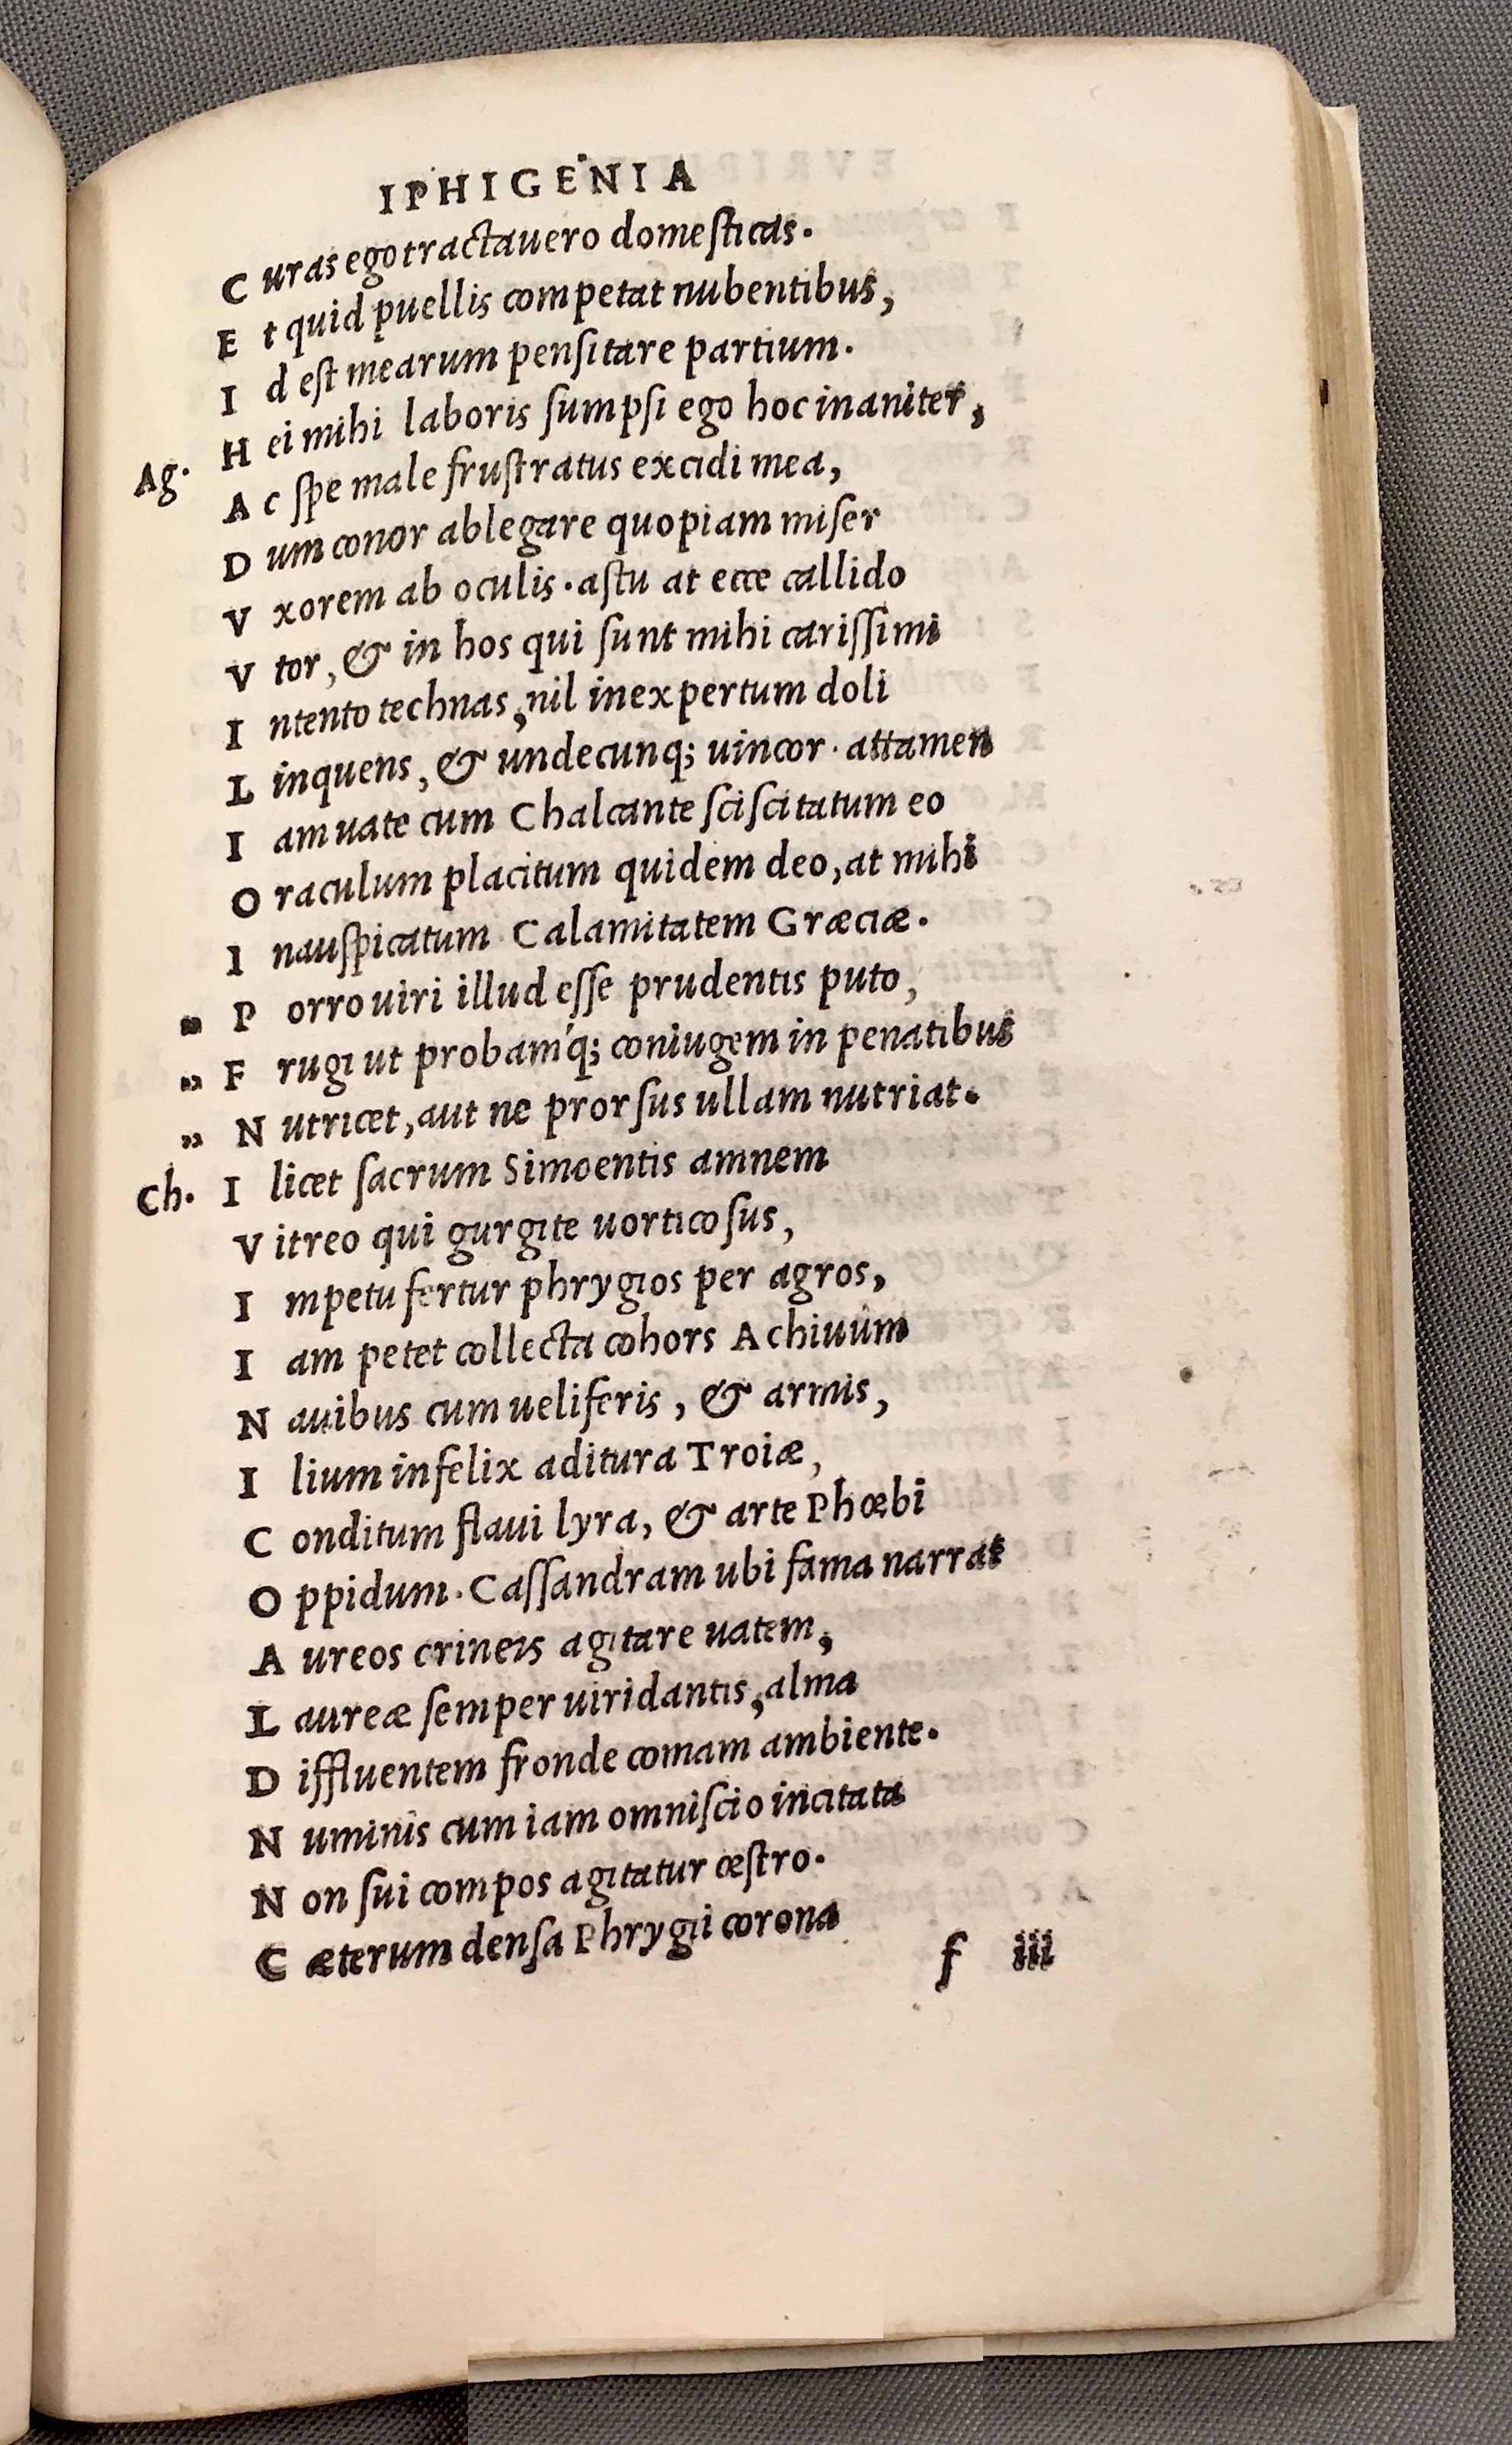 IPHIGENIA
C uras ego tractauero domesticas.
E t quid puellis competat nubentibus,
I d est mearum pensitare partium.
Ag. H ei mihi laboris sumpsi ego hoc inaniter,
A c spe male frustratus excidi mea,
D um conor ablegare quopiam miser
V xorem ab oculis. astu at ecce callido
V tor, & in hos qui sunt mihi carissimi
I ntento technas, nil inexpertum doli
L inquens, & undecunq; uincor. attamen
I am uate cum Chalcante sciscitatum eo
O raculum placitum quidem deo, at mihi
I nauspicatum Calamitatem Græciæ.
„ P orro uiri illud esse prudentis puto,
„ F rugi ut probam'q; coniugem in penatibus
„ N utricet, aut ne prorsus ullam nutriat.
Ch. I licet sacrum Simoentis amnem
V itreo qui gurgite uorticosus,
I mpetu fertur phrygios per agros,
I am petet collecta cohors Achiuûm
N auibus cum ueliferis, & armis,
I lium infelix aditura Troiæ,
C onditum flaui lyra, & arte Phœbi
O ppidum. Cassandram ubi fama narrat
A ureos crineis agitare uatem,
L aureæ semper uiridantis, alma
D iffluentem fronde comam ambiente.
N uminis cum iam omniscio incitata
N on sui compos agitatur œstro.
C æterum densa Phrygii corona
f iii